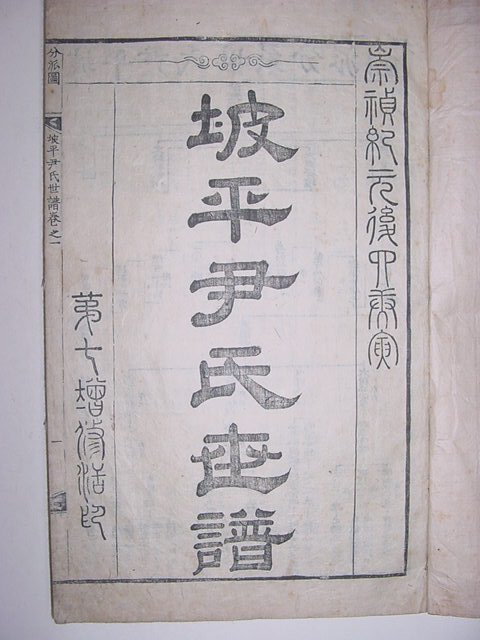 崇禎紀元後四庚寅
坡平尹氏世譜
第七增修活印
分派圖
坡平尹氏世譜卷之一
一